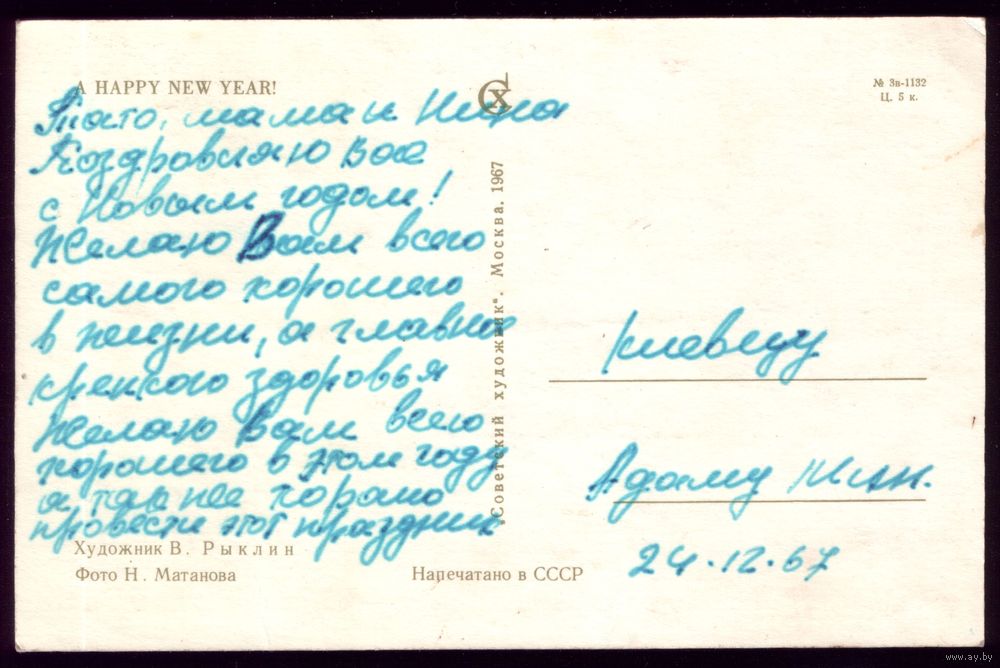 A HAPPY NEW YEAR!
СХ
№ 3в-1132
Ц. 5 к.
Тато, мама и Нина
Поздровляю Вас
с Новым годом!
Желаю Вам всего
самого хорошего
в жизни, а главное
крепкого здоровья
Желаю Вам всего
хорошего в этом году
а так же хорошо
провести этот праздник
„Советский художник“. Москва. 1967
Киевцу
Адаму
24.12.67
Художник В. Рыклин
Фото Н. Матанова
Напечатано в СССР
www.ay.by